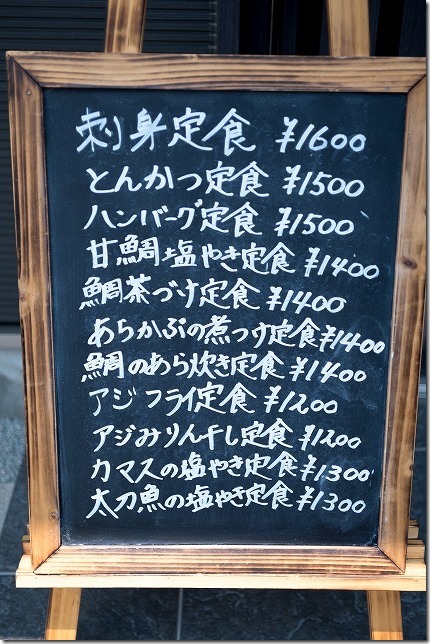 刺身定食 ¥1600
とんかつ定食 ¥1500
ハンバーグ定食 ¥1500
甘鯛塩やき定食 ¥1400
鯛茶づけ定食 ¥1400
あらかぶの煮つけ定食 ¥1400
鯛のあら炊き定食 ¥1400
アジフライ定食 ¥1200
アジみりん干し定食 ¥1200
カマスの塩やき定食 ¥1300
太刀魚の塩やき定食 ¥1300